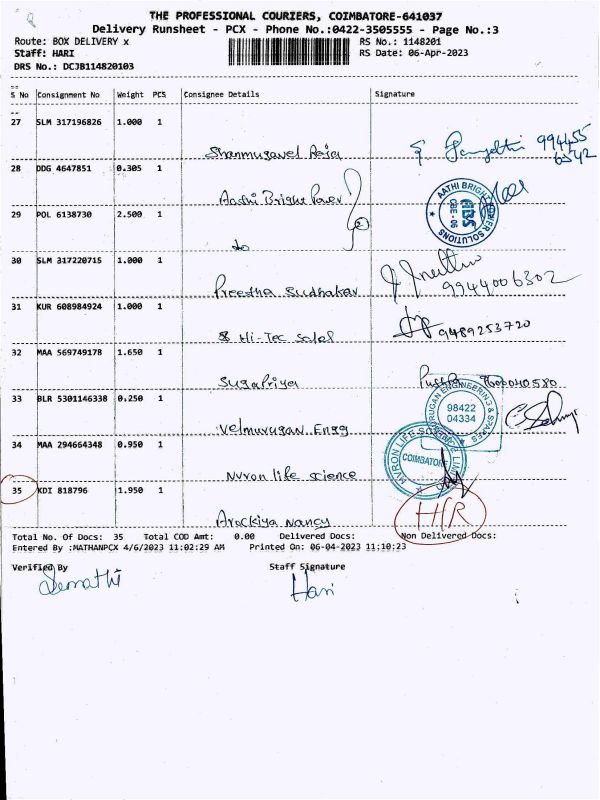 THE PROFESSIONAL COURIERS, COIMBATORE-641037
Delivery Runsheet - PCX - Phone No.:0422-3505555 - Page No.:3
Route: BOX DELIVERY x RS No.: 1148201
Staff: HARI RS Date: 06-Apr-2023
DRS No.: DCJB114820103
S No Consignment No Weight PCS Consignee Details Signature
27 SLM 317196826 1.000 1
Shanmugavel Raja 994455
6542
28 DDG 4647851 0.305 1
Aadhi Bright Power
AATHI BRIGHT POWER SOLUTIONS
CBE-06
29 POL 6138730 2.500 1
do
30 SLM 317220715 1.000 1
Preetha Sudhakar 9944006302
31 KUR 608984924 1.000 1
Hi-Tec 9489253720
32 MAA 569749178 1.650 1
Sugapriya
33 BLR 5301146338 0.250 1
98422
04334
Velmurugan Engg
34 MAA 294664348 0.950 1
COIMBATORE
Nvron life science
35 KDI 818796 1.950 1
Arockiya Nancy
Total No. Of Docs: 35 Total COD Amt: 0.00 Delivered Docs: Non Delivered Docs:
Entered By :MATHANPCX 4/6/2023 11:02:29 AM Printed On: 06-04-2023 11:10:23
Verified By Staff Signature
Hari